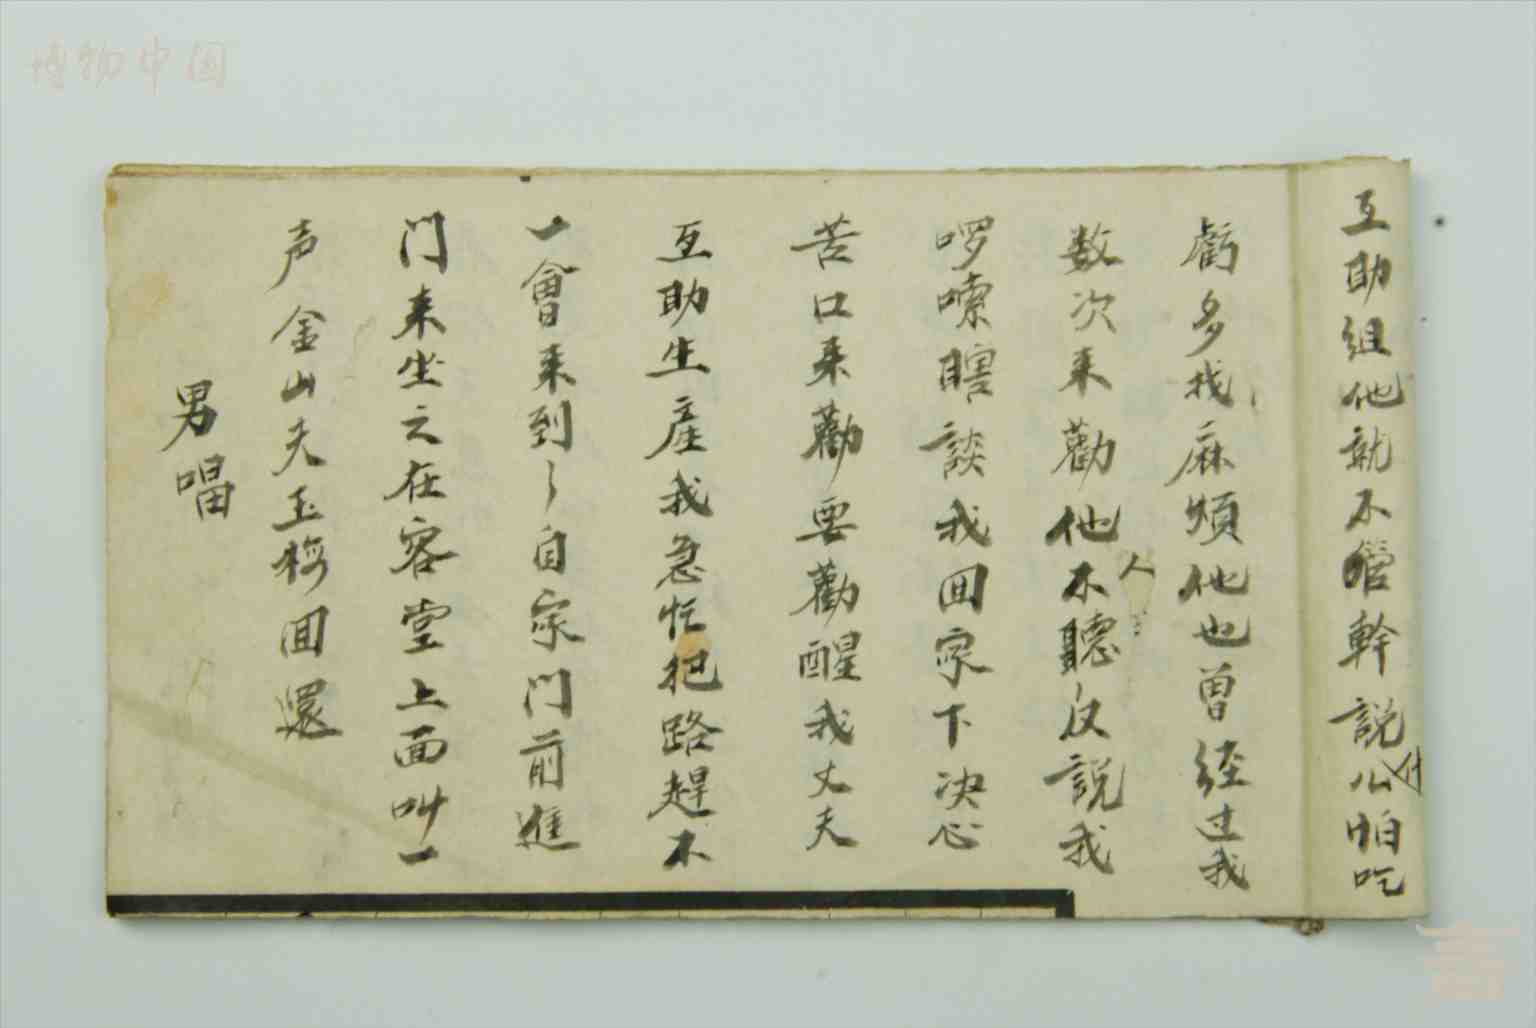 互助组他就不管幹説什公怕吃
虧多找麻煩他也曾经过我
数次来勸他人不聽反説我
啰嗦瞎談我回家下决心
苦口来勸要勸醒我丈夫
互助生產我急忙把路趕不
一會来到〻自家门前進
门来坐之在客堂上面叫一
声金山夫玉梅回還
男唱
博物中国